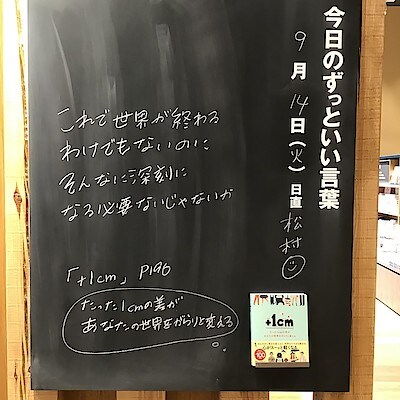 今日のずっといい言葉
9月14日(火) 日直 松村
これで世界が終わる
わけでもないのに
そんなに深刻に
なる必要ないじゃないか
「+1cm」 P196
たった1cmの差が
あなたの世界をがらりと変える。
+1cm